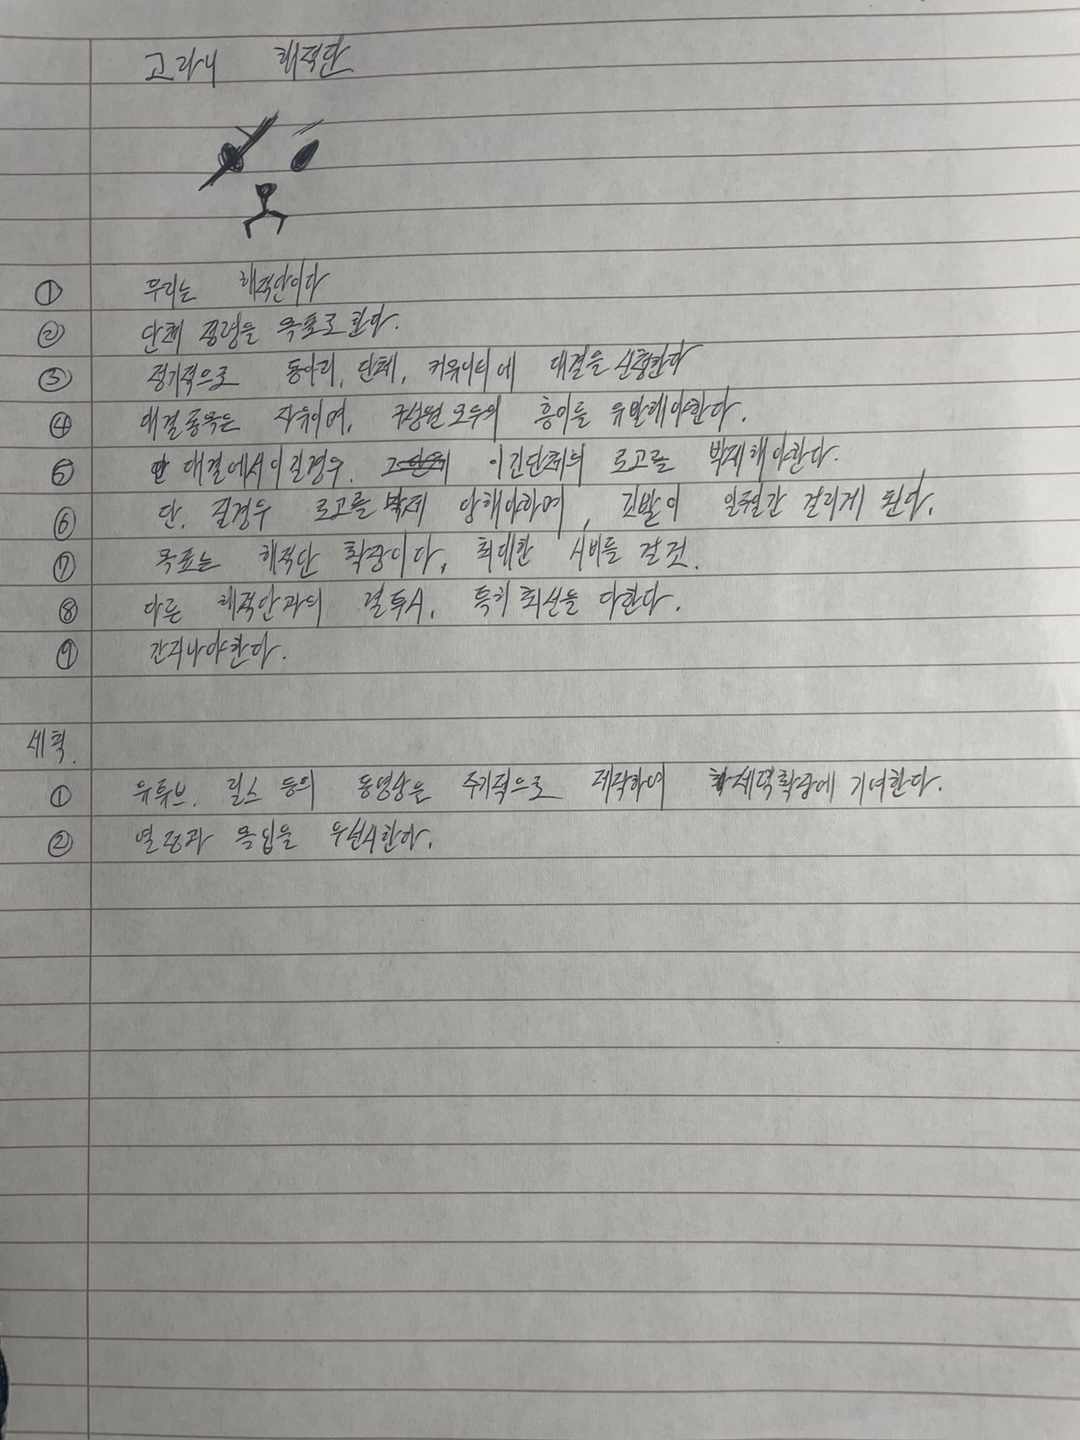 고라니 해적단
① 우리는 해적단이다
② 단체 점령을 목표로 한다.
③ 정기적으로 동아리, 단체, 커뮤니티에 대결을 신청한다
④ 대결종목은 자유이며, 구성원 모두의 흥미를 유발해야한다.
⑤ 대결에서 이길경우, 이긴단체의 로고를 박제해야한다.
⑥ 단, 질경우 로고를 박제 당해야하며, 깃발이 일주일간 걸리게 된다.
⑦ 목표는 해적단 확장이다, 최대한 시비를 걸것.
⑧ 다른 해적단과의 결투시, 특히 최선을 다한다.
⑨ 간지나야한다.
세칙.
① 유튜브, 릴스 등의 동영상을 주기적으로 제작하여 세력확장에 기여한다.
② 열정과 몰입을 우선시한다.